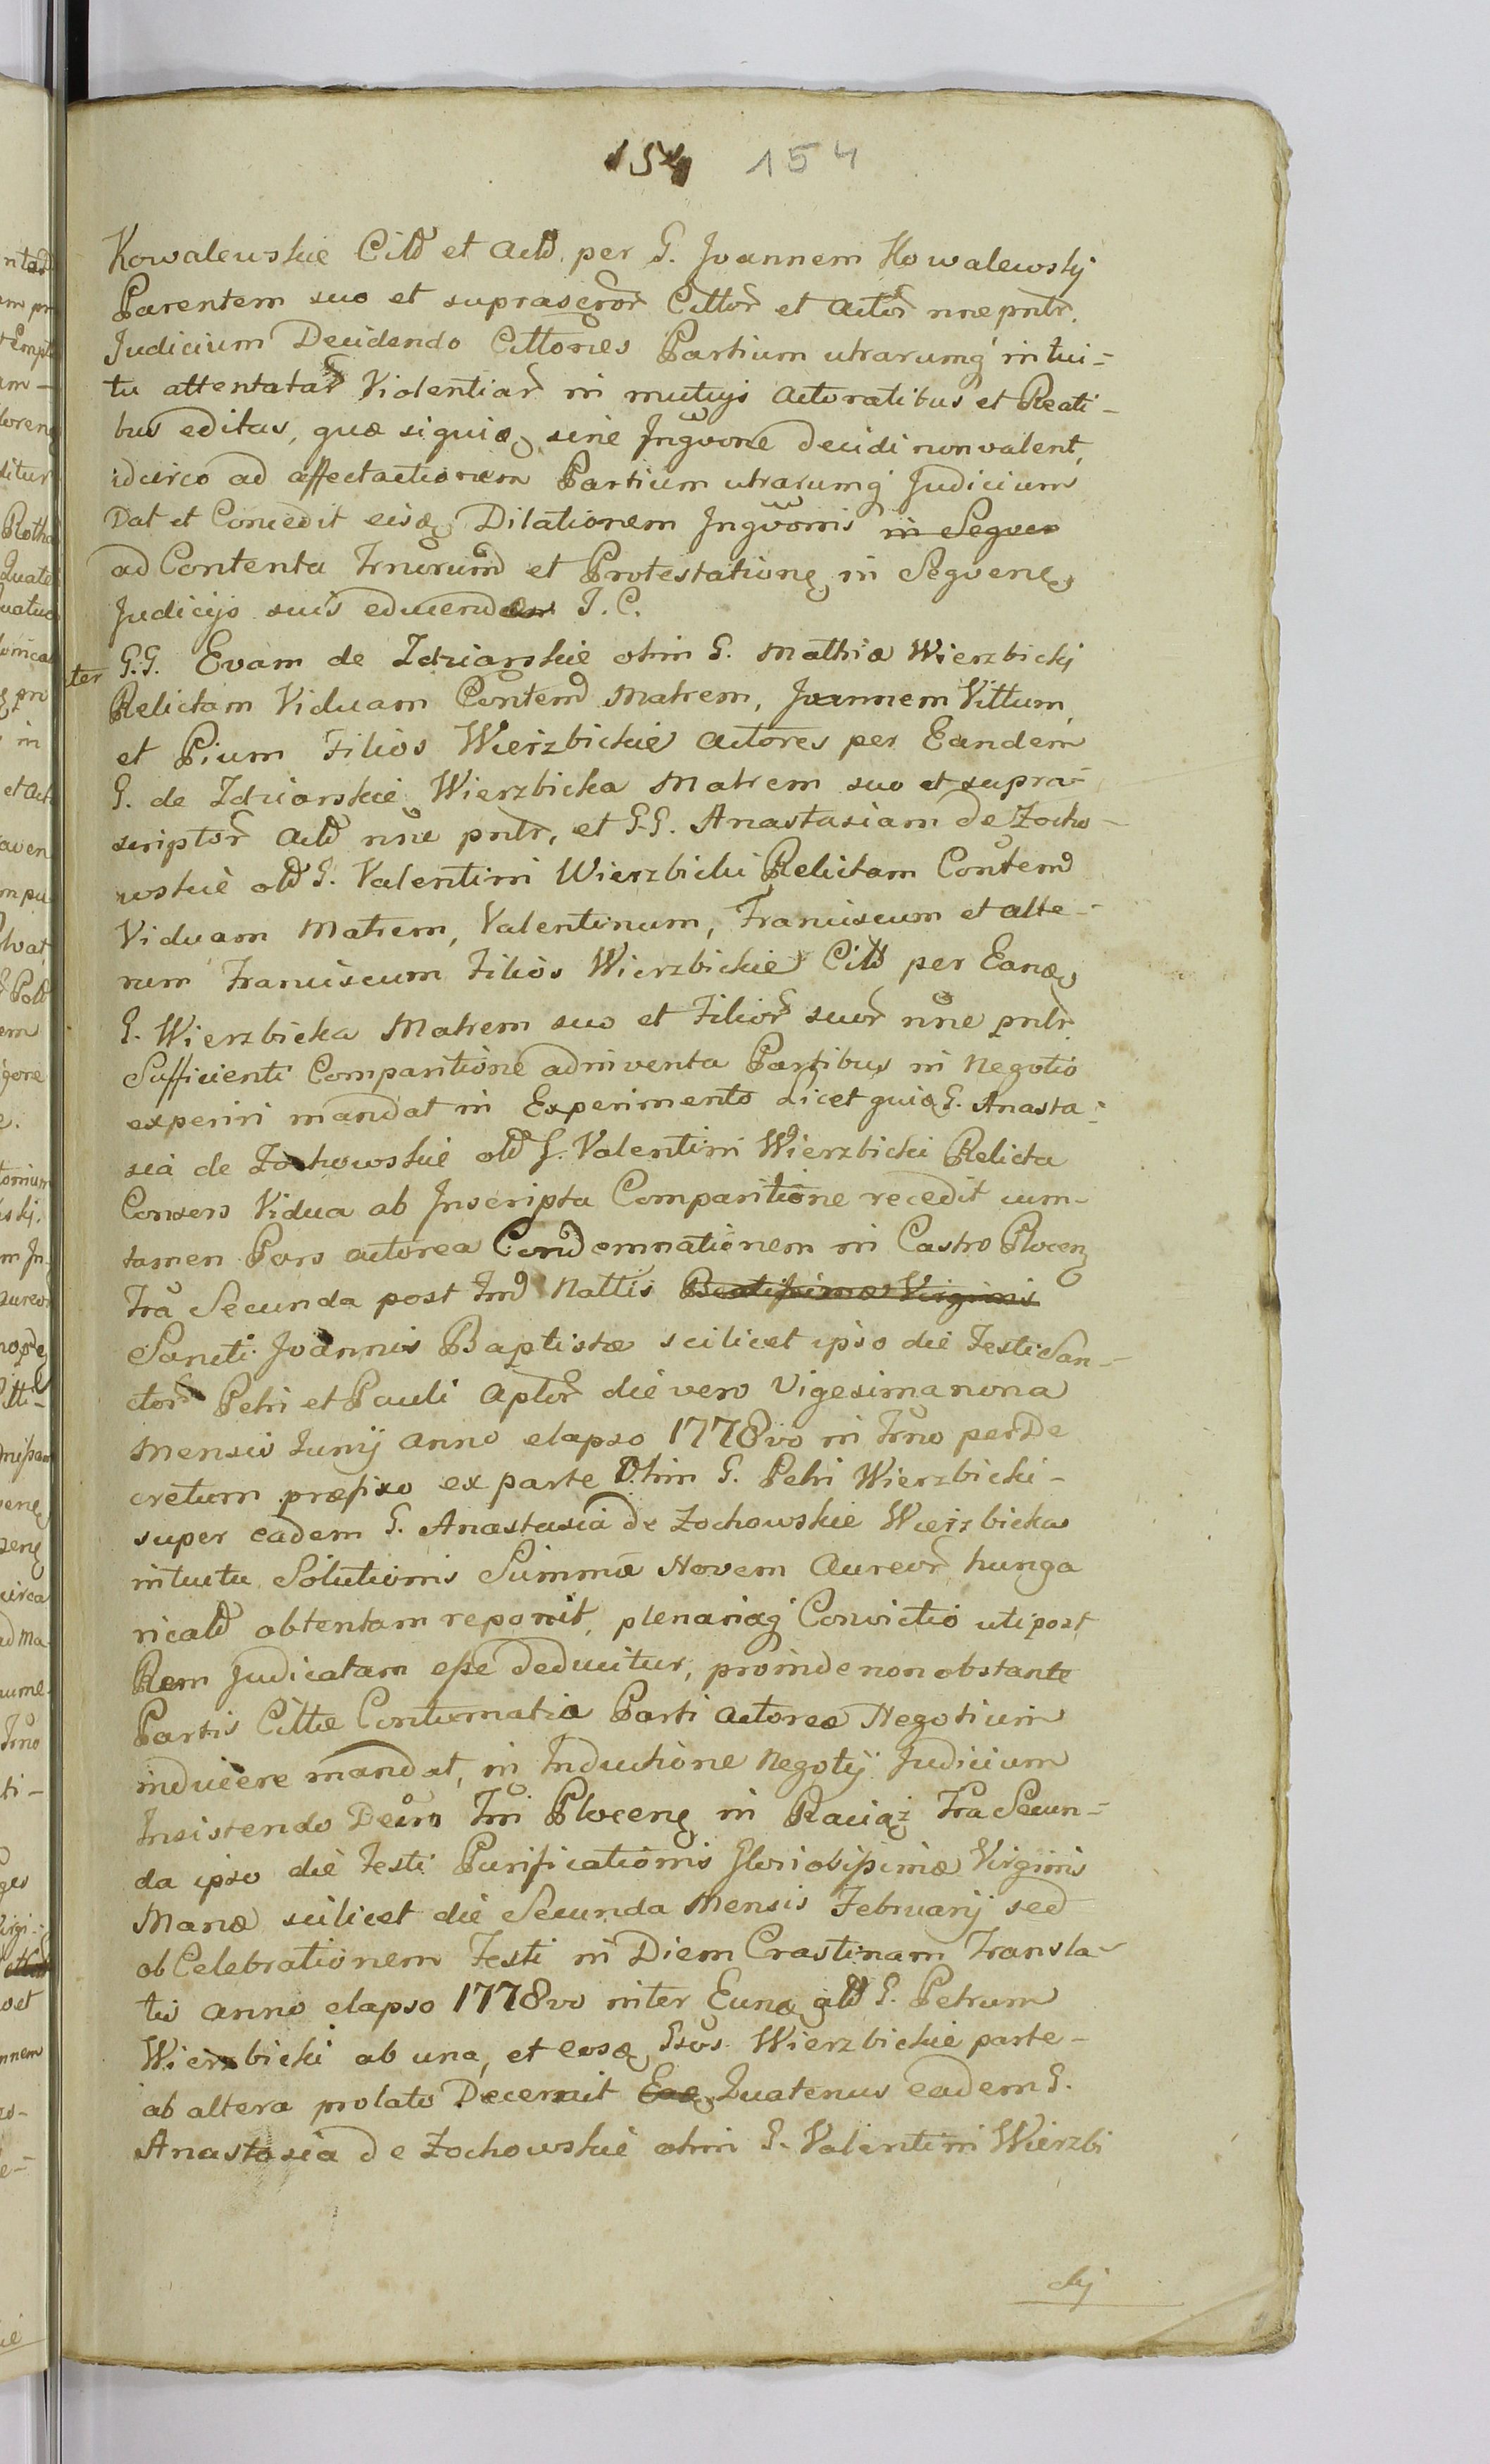 154 154
Kowalewskie Citd et Actd per G. Joannem Kowalewskj
Parentem suo et suprascror Cittor et Actor nne pntr.
Judicium Decidendo Cittones Partium utrarumq intui-
tu attentatar Violentiar in mutuis Actoratibus et Reati-
bus editas, quæ siquid sine Inqvone decidi non valent,
idcirco ad affectationem Partium utrarumq Judicium
Dat et Concedit eisd Dilationem Inqvonis in Seqven
ad Contenta Trnorum et Protestationæ in Seqvenę
Judicijs suis educendas. J. C.
ter G.G. Evam de Zdziarskie olim G. Mathiæ Wierzbickj
Relictam Viduam Contemd Matrem, Joannem Vittum,
et Pium Filios Wierzbickie Actores per Eandem
G. de Zdziarskie Wierzbicka Matrem suo et supra-
scriptor Actd nne pntr, et G.G. Anastasiam de Zocho-
wskie old G. Valentini Wierzbicki Relictam Contemd
Viduam Matrem, Valentinum, Franciscum et alte-
rum Franciscum Filios Wierzbickie Citd per Eand
G. Wierzbicka Matrem suo et Filior suor nne pntr
Sufficienti Comparitione adinventa Partibus in Negotio
experiri mandat in Experimento licet quid G. Anasta-
sia de Zochowskie old G. Valentini Wierzbicki Relicta
Consors Vidua ab Inscripta Comparitione recedit cum-
tamen Pars actorea Condemnationem in Castro Plocen
Fra Secunda post Fmd Nattis Beatissimæ Virginis
Sancti Joannis Baptistæ scilicet ipso die Festi San-
ctor Petri et Pauli Aplor die vero Vigesima nona
Mensis Junij Anno elapso 1778vo in Trno per De
cretum præfixo ex parte Olim G. Petri Wierzbicki-
super eadem G. Anastasia de Zochowskie Wierzbicka
intuitu Solutionis Summæ Novem Aureor hunga
ricald obtentam reponit, plenariaq Convictio uti post
Rem Judicatam esse deducitur, proinde non obstante
Partis Cittæ Contumatia Parti Actoreæ Negotium
inducere mandat, in Inductione Negotij Judicium
Insistendo Decro Tri Plocenę in Raciąż Fra Secun-
da ipso die Festi Purificationis Gloriosissimæ Virginis
Mariæ scilicet die Secunda Mensis Februarij sed
ob Celebrationem Festi in Diem Crastinam Transla-
tis Anno elapso 1778vo inter Eund old G. Petrum
Wierzbicki ab una, et eosd Gsos Wierzbickie parte-
ab altera prolato Decernit Ead Quatenus eadem G.
Anastasia de Zochowskie olim G. Valentini Wierzbi
ckj